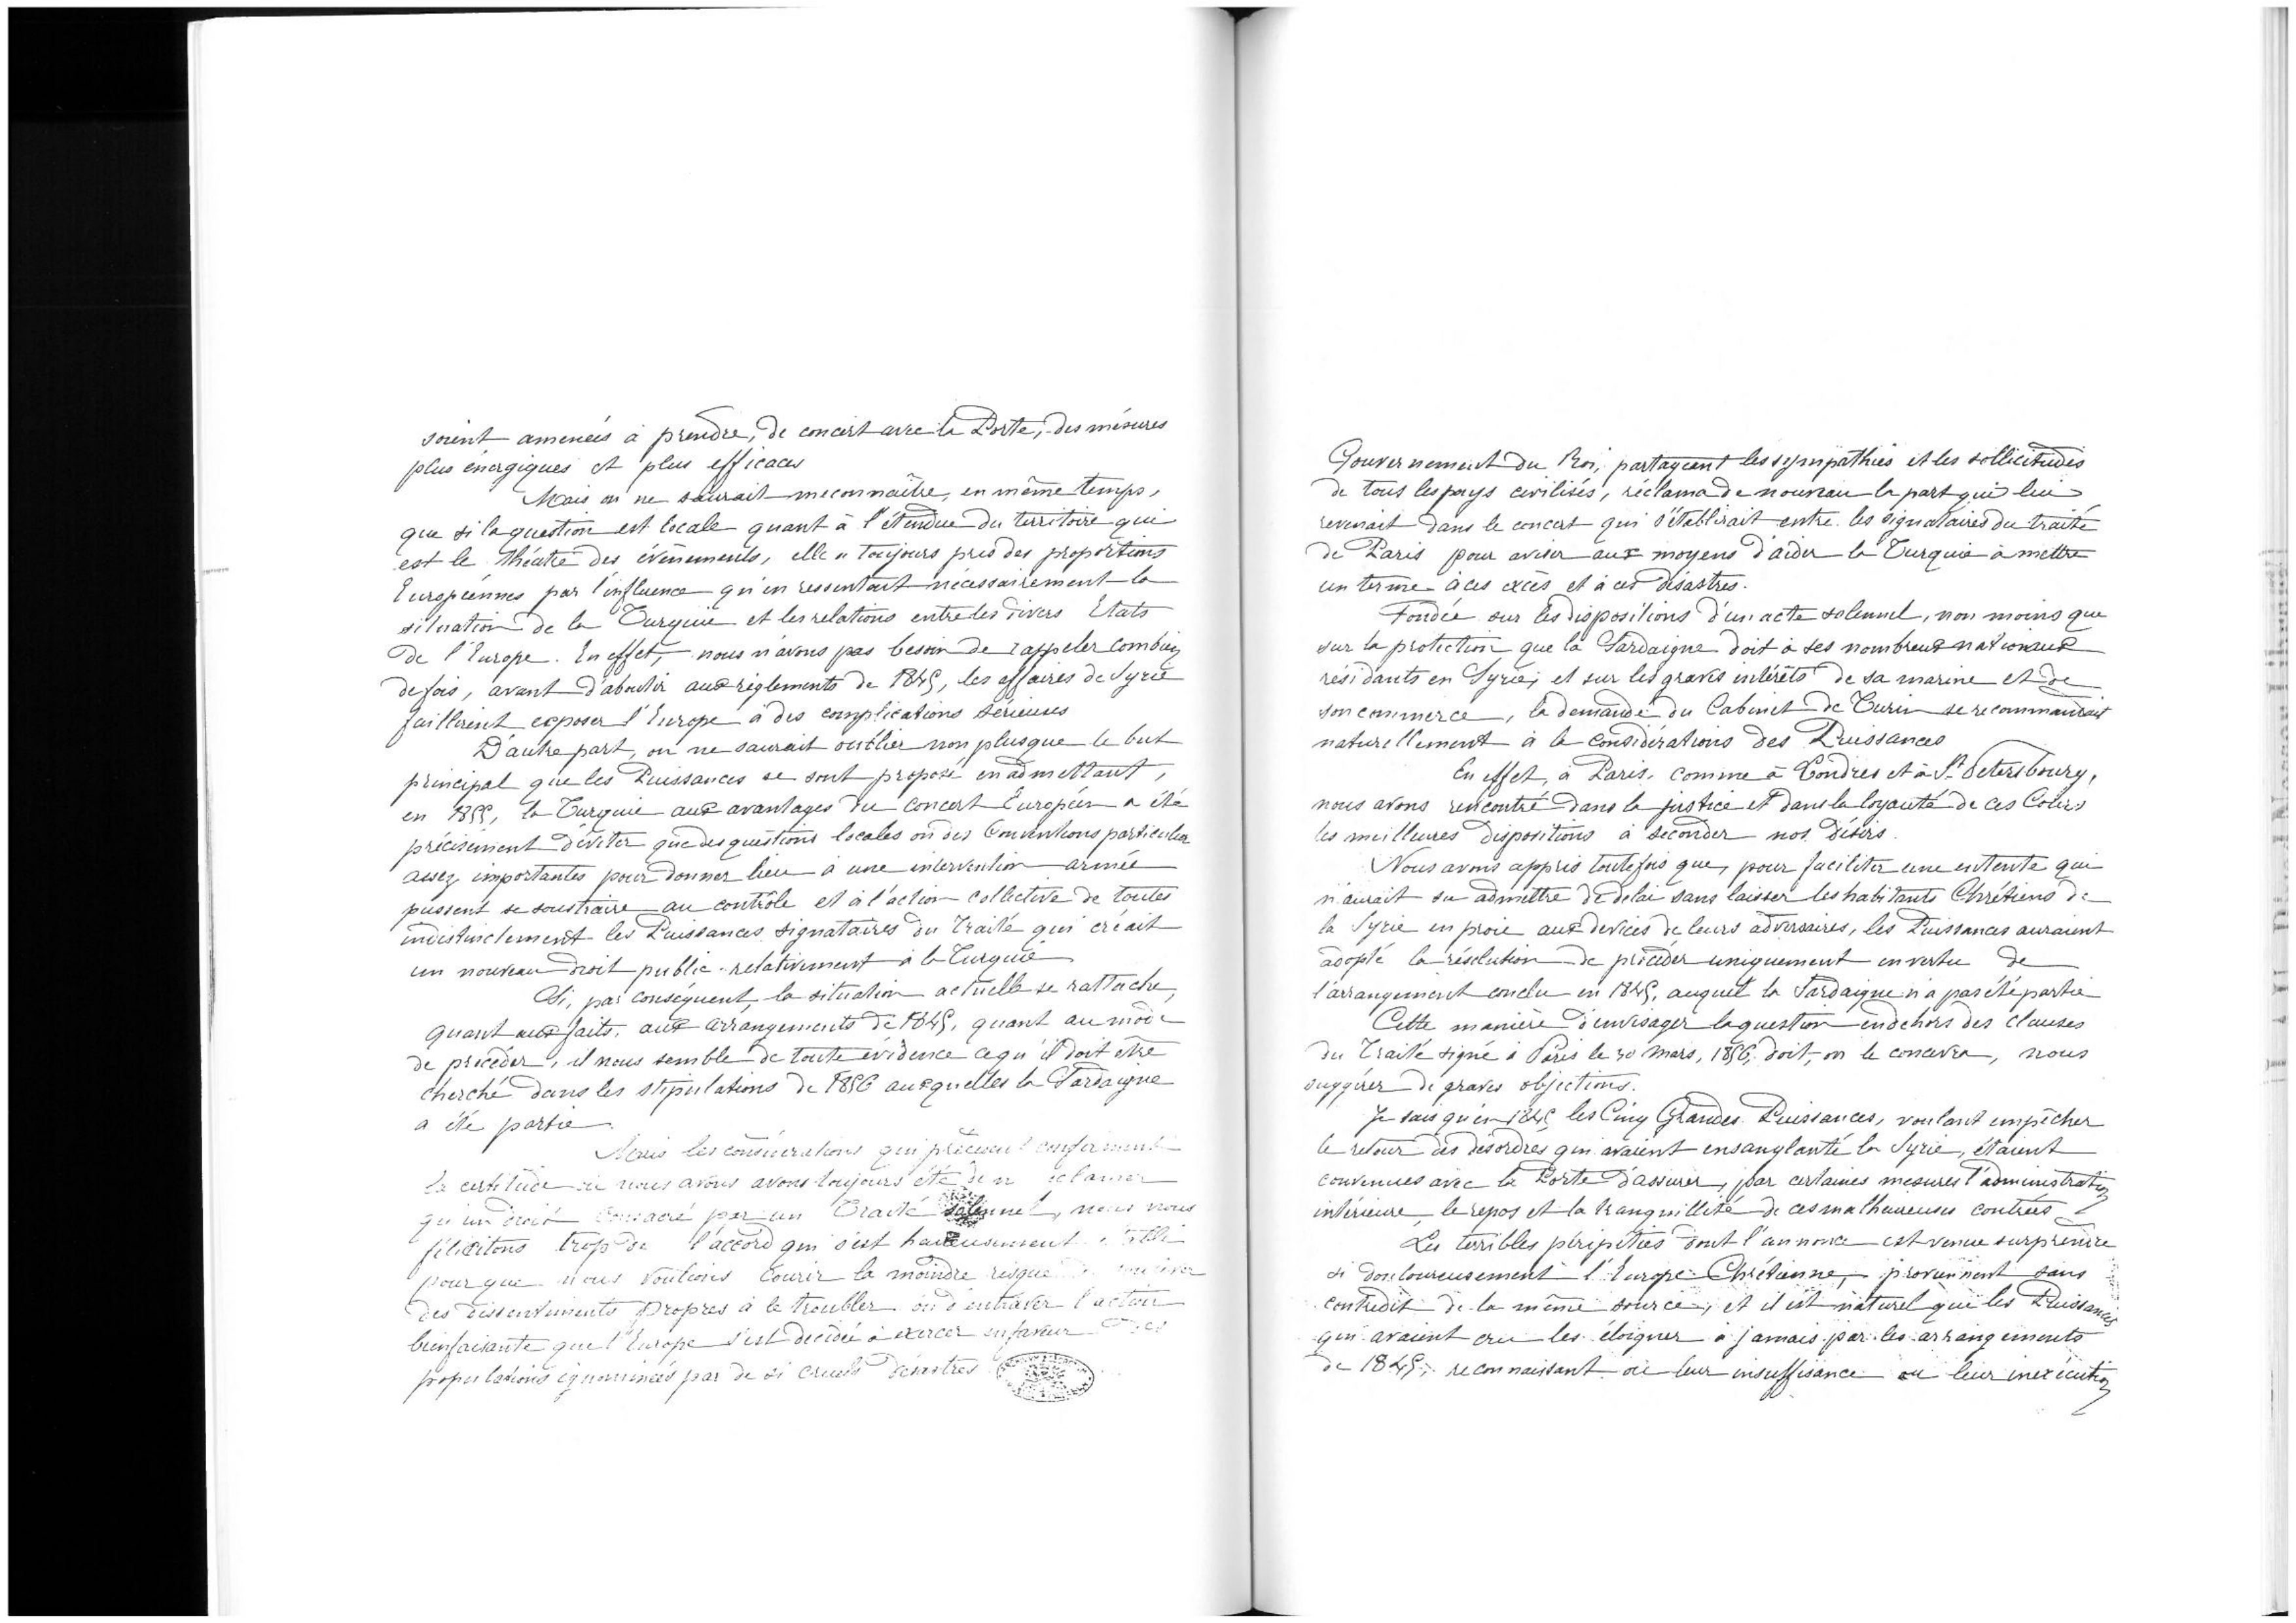 soient amenées à prendre, de concert avec la Porte, des mésures
plus énergiques et plus efficaces
Mais on ne saurait meconnaître, en même temps,
que si la question est locale quant à l'étendue du territoire qui
est le théatre des événements, elle a toujours pris des proportions
Européennes par l'influence qu'en ressentait nécessairement la
situation de la Turquie et les relations entre les divers Etats
de l'Europe. En effet, nous n'avons pas besoin de rappeler combien
de fois, avant d'aboutir aux règlements de 1845, les affaires de Syrie
faillirent exposer l'Europe à des complications sérieuses
D'autre part, on ne saurait oublier non plus que le but
principal que les Puissances se sont proposé en admettant,
en 1855, la Turquie aux avantages du concert Européen a été
précisément d'éviter que des questions locales ou des Conventions particulières
assez importantes pour donner lieu à une intervention armée
pussent se soustraire au contrôle et à l'action collective de toutes
indistinctement les Puissances signataires du Traité qui créait
un nouveau droit public relativement à la Turquie
Si, par conséquent, la situation actuelle se rattache,
quant aux faits, aux arrangements de 1845, quant au mode
de procéder, il nous semble de toute évidence cequ'il doit etre
cherché dans les stipulations de 1856 auxquelles la Sardaigne
a été partie.
Mais les considérations qui précèdent confirment
la certitude où nous avons avons toujours été de n réclamer
qu'un droit consacré par un Traité solennel, nous nous
félicitons trop de l'accord qui s'est heureusement établi
pour que nous voulions courir la moindre risque
des dissentiments propres à le troubler ou d'entraver l'action
bienfaisante que l'Europe s'est décidée à exercer en faveur des
populations par de si cruels désastres
Gouvernement du Roi, partageant les sympathies et les sollicitudes
de tous les pays civilisés, réclama de nouveau la part qui lui
revenait dans le concert qui s'établirait entre les signataires du traité
de Paris pour aviser aux moyens d'aider la Turquie à mettre
un terme à ces excès et à ces désastres.
Fondée sur les dispositions d'un acte solennel, non moins que
sur la protection que la Sardaigne doit à ses nombreux nationaux
résidants en Syrie, et sur les graves intérêts de sa marine et de
son commerce, la demande du Cabinet de Turin se recommandait
naturellement à la considérations des Puissances
En effet, à Paris, comme à Londres et à St Petersbourg,
nous avons rencontré dans la justice et dans la loyauté de ces Cours
les meilleures dispositions à seconder nos désirs.
Nous avons appris toutefois que, pour faciliter une entente qui
n'aurait su admettre de delai sans laisser les habitants Chrétiens de
la Syrie en proie aux de leurs adversaires, les Puissances auraient
adopté la résolution de procéder uniquement en vertu de
l'arrangement conclu en 1845, auquel la Sardaigne n'a pas été partie
Cette manière d'envisager la question endehors des clauses
du Traité signé à Paris le 30 Mars, 1856, doit, on le concevra, nous
suggérer de graves objections.
Je sais qu'en 1845 les Cinq Grandes Puissances, voulant empêcher
le retour des désordres qui avaient ensanglanté la Syrie, étaient
convenues avec la Porte d'assurer, par certaines mesures l'administration
intérieure, le repos et la tranquillité de ces malheureuses contrées
Les terribles péripéties dont l'annonce est venue surprendre
si douloureusement l'Europe Chrétienne, proviennent sans
contredit de la même source, et il est naturel que les Puissances
qui avaient cru les éloigner à jamais par les arrangements
de 1845, reconnaissant ou leur insuffisance ou leur inexécution